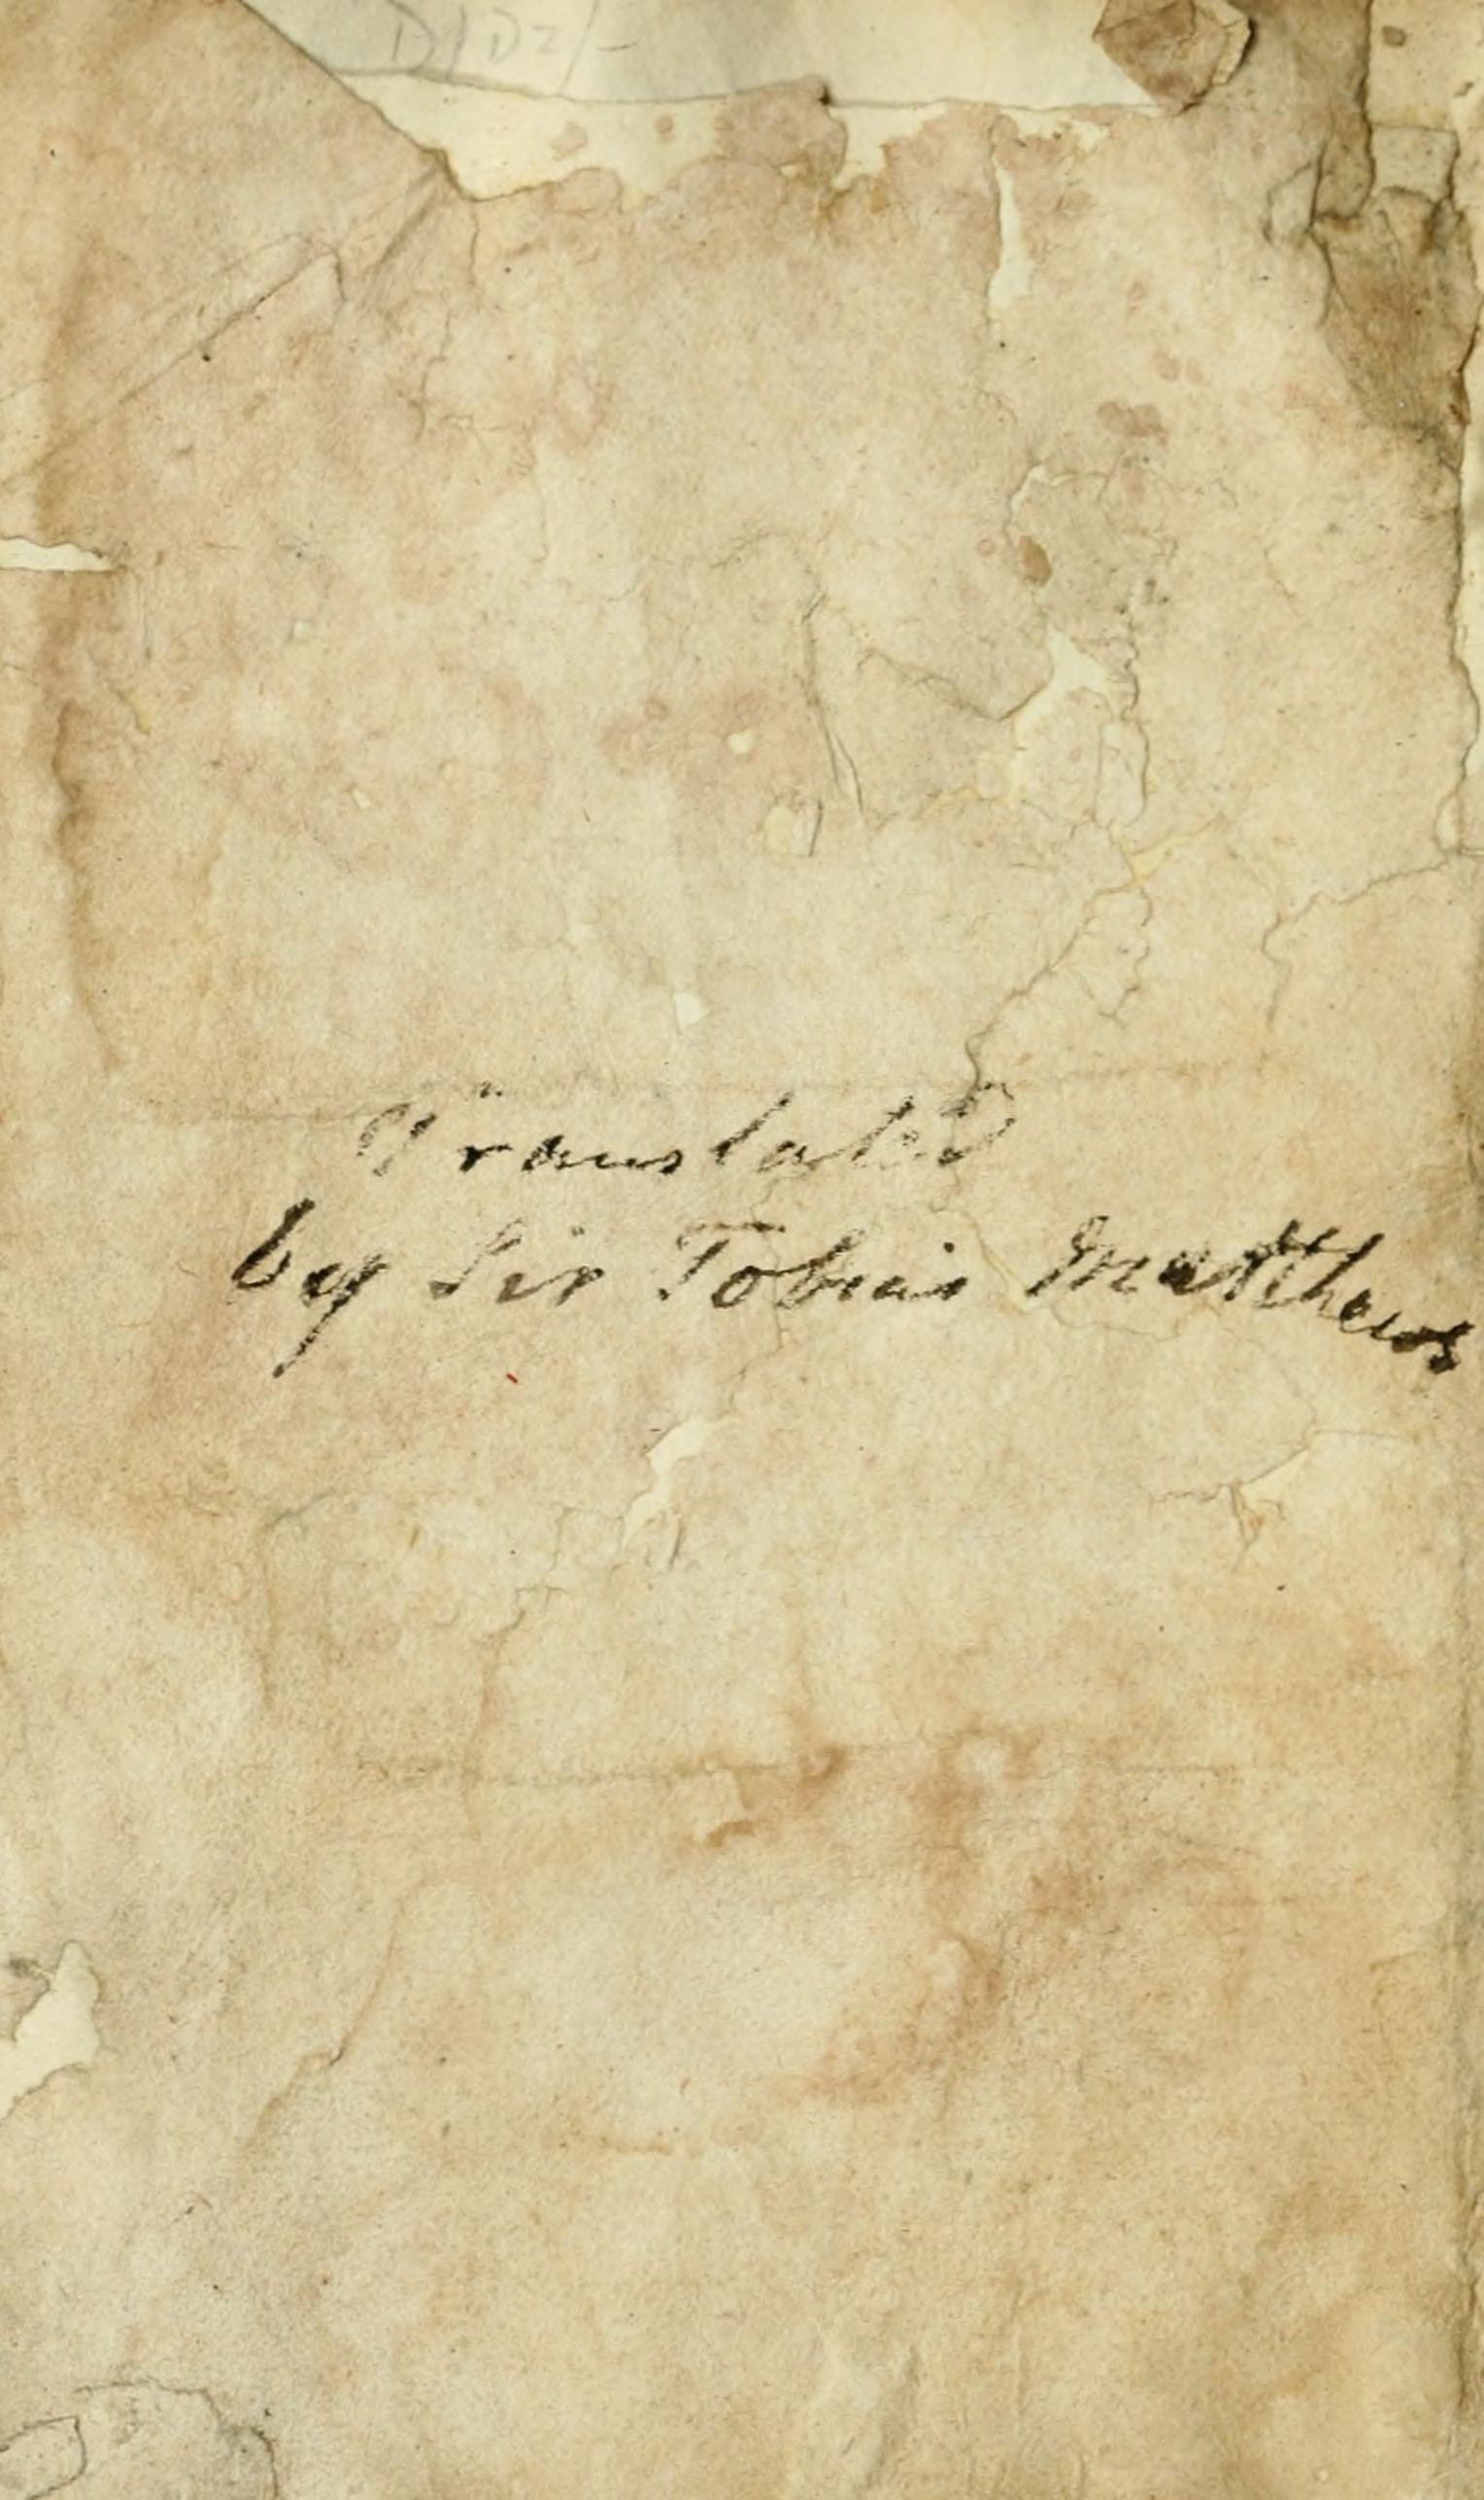 Translated
by Sir Tobias Matthews